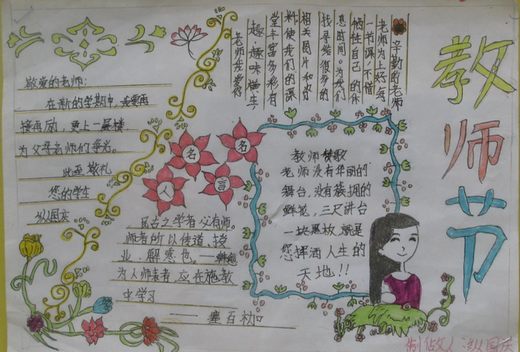 教师节
辛勤的老师
老师为上好每
一节课，不惜
牺牲自己的休
息时间。为我们
找寻能很多的
相关图片和资
料使我们的课
堂丰富多彩有
趣，趣味横生
老师我爱你
敬爱的老师：
在新的学期中，我要再
接再励，更上一层楼
为父母老师们争光。
此致敬礼
您的学生
纵国庆
名人名言
教师赞歌
老师没有华丽的
舞台，没有簇拥的
鲜花，三尺讲台
一块黑板就是
您挥洒人生的
天地！！
民古之学者必有师。
师者所以传道，授
业，解惑也。
为人师表者，应在施教
中学习
—— 塞百初
制做人：纵国庆